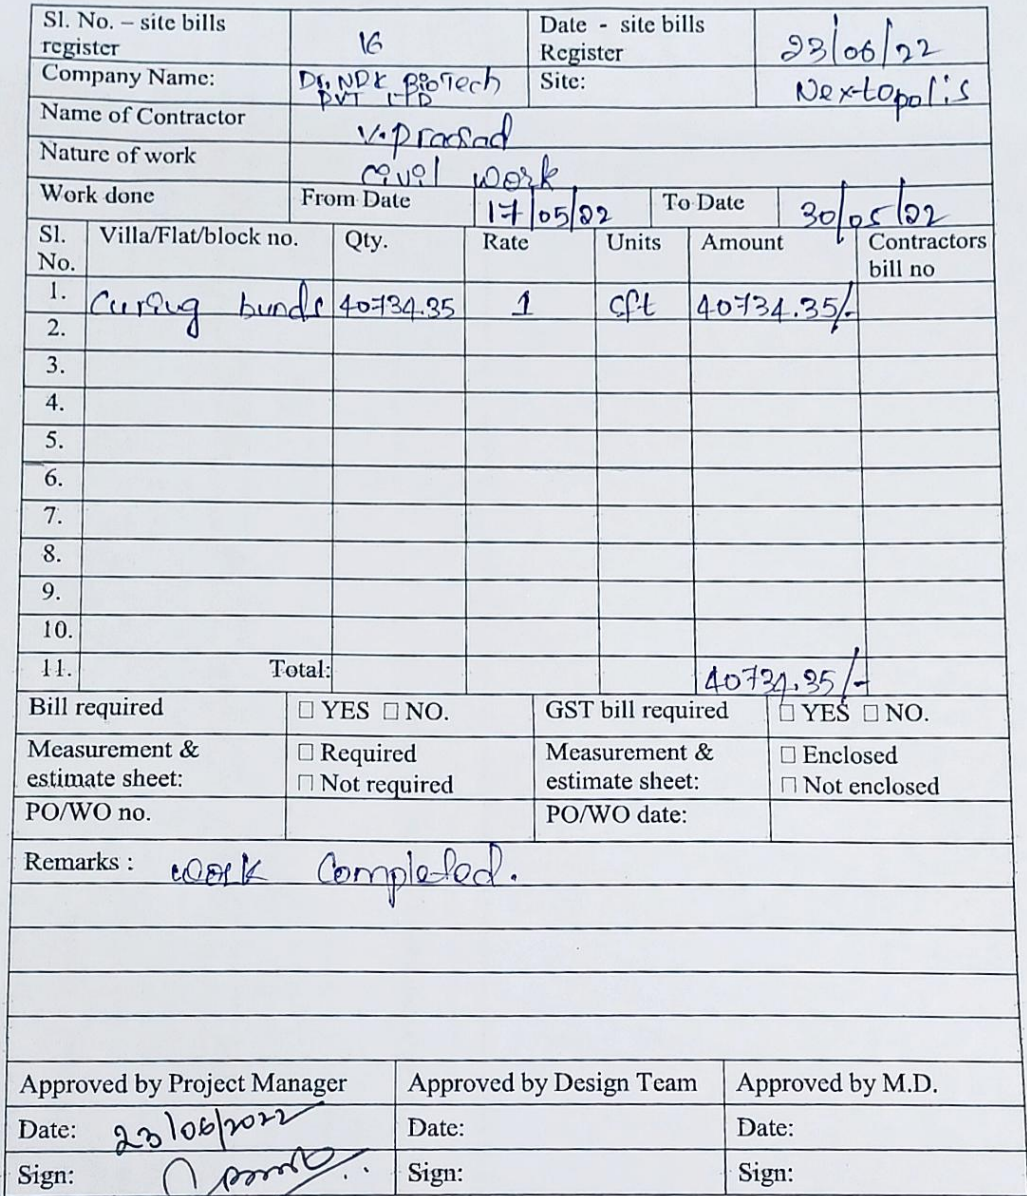 Sl. No. – site bills register 16 Date - site bills Register 23/06/22
Company Name: Dr. NDK BioTech PVT LTD Site: Nextopolis
Name of Contractor V. Prasad
Nature of work civil work
Work done From Date 17/05/22 To Date 30/05/22
Sl. No. Villa/Flat/block no. Qty. Rate Units Amount Contractors bill no
1. Curing bunds 40734.35 1 cft 40734.35/-
2.
3.
4.
5.
6.
7.
8.
9.
10.
11. Total: 40734.35/-
Bill required ☐ YES ☐ NO. GST bill required ☐ YES ☐ NO.
Measurement & estimate sheet: ☐ Required ☐ Not required Measurement & estimate sheet: ☐ Enclosed ☐ Not enclosed
PO/WO no. PO/WO date:
Remarks : work Completed.
Approved by Project Manager Approved by Design Team Approved by M.D.
Date: 23/06/2022 Date: Date:
Sign: Sign: Sign: